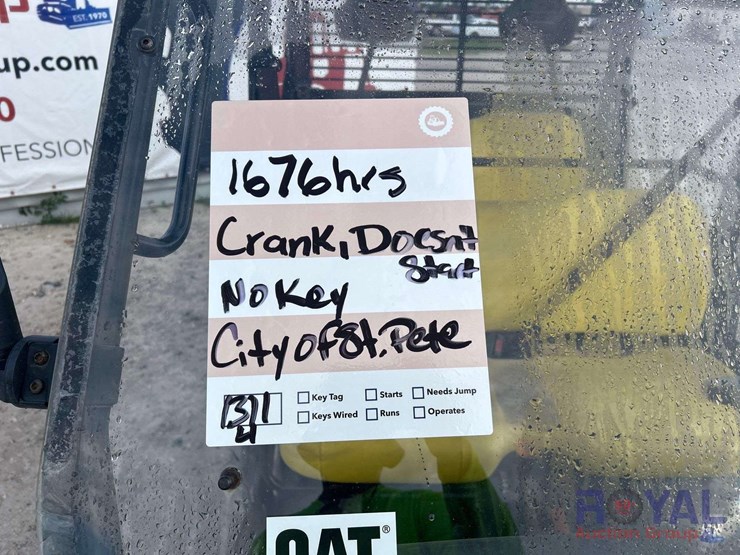 EST. 1970
up.com
0
FESSION
1676hrs
Crank, Doesnt
Start
No Key
City of St. Pete
Key Tag
Starts
Needs Jump
Keys Wired
Runs
Operates
CAT®
ROYAL
Auction Group